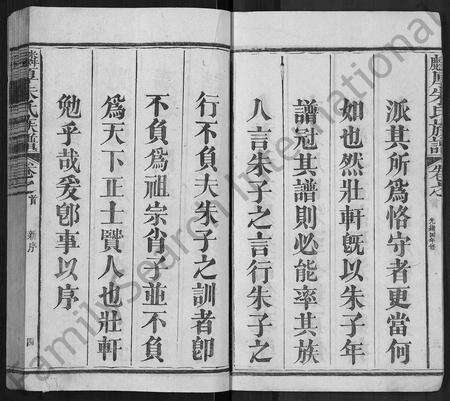 派其所爲恪守者更當何
如也然壯軒既以朱子年
譜冠其譜則必能率其族
人言朱子之言行朱子之
行不負夫朱子之訓者卽
不負爲祖宗肖子並不負
爲天下正士賢人也壯軒
勉乎哉爰卽事以序
朱氏族譜
卷之首
新序
四
朱氏族譜
卷之
FamilySearch International